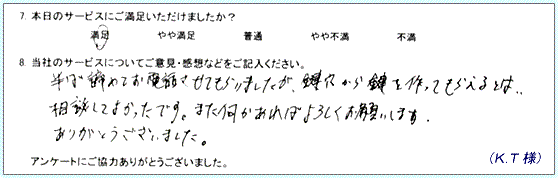 7. 本日のサービスにご満足いただけましたか？
満足 やや満足 普通 やや不満 不満
8. 当社のサービスについてご意見・感想などをご記入ください。
半ば諦めてお電話させてもらいましたが、鍵穴から鍵を作ってもらえるとは..
相談してよかったです。また何かあればよろしくお願いします.
ありがとうございました。
アンケートにご協力ありがとうございました。
(K.T 様)